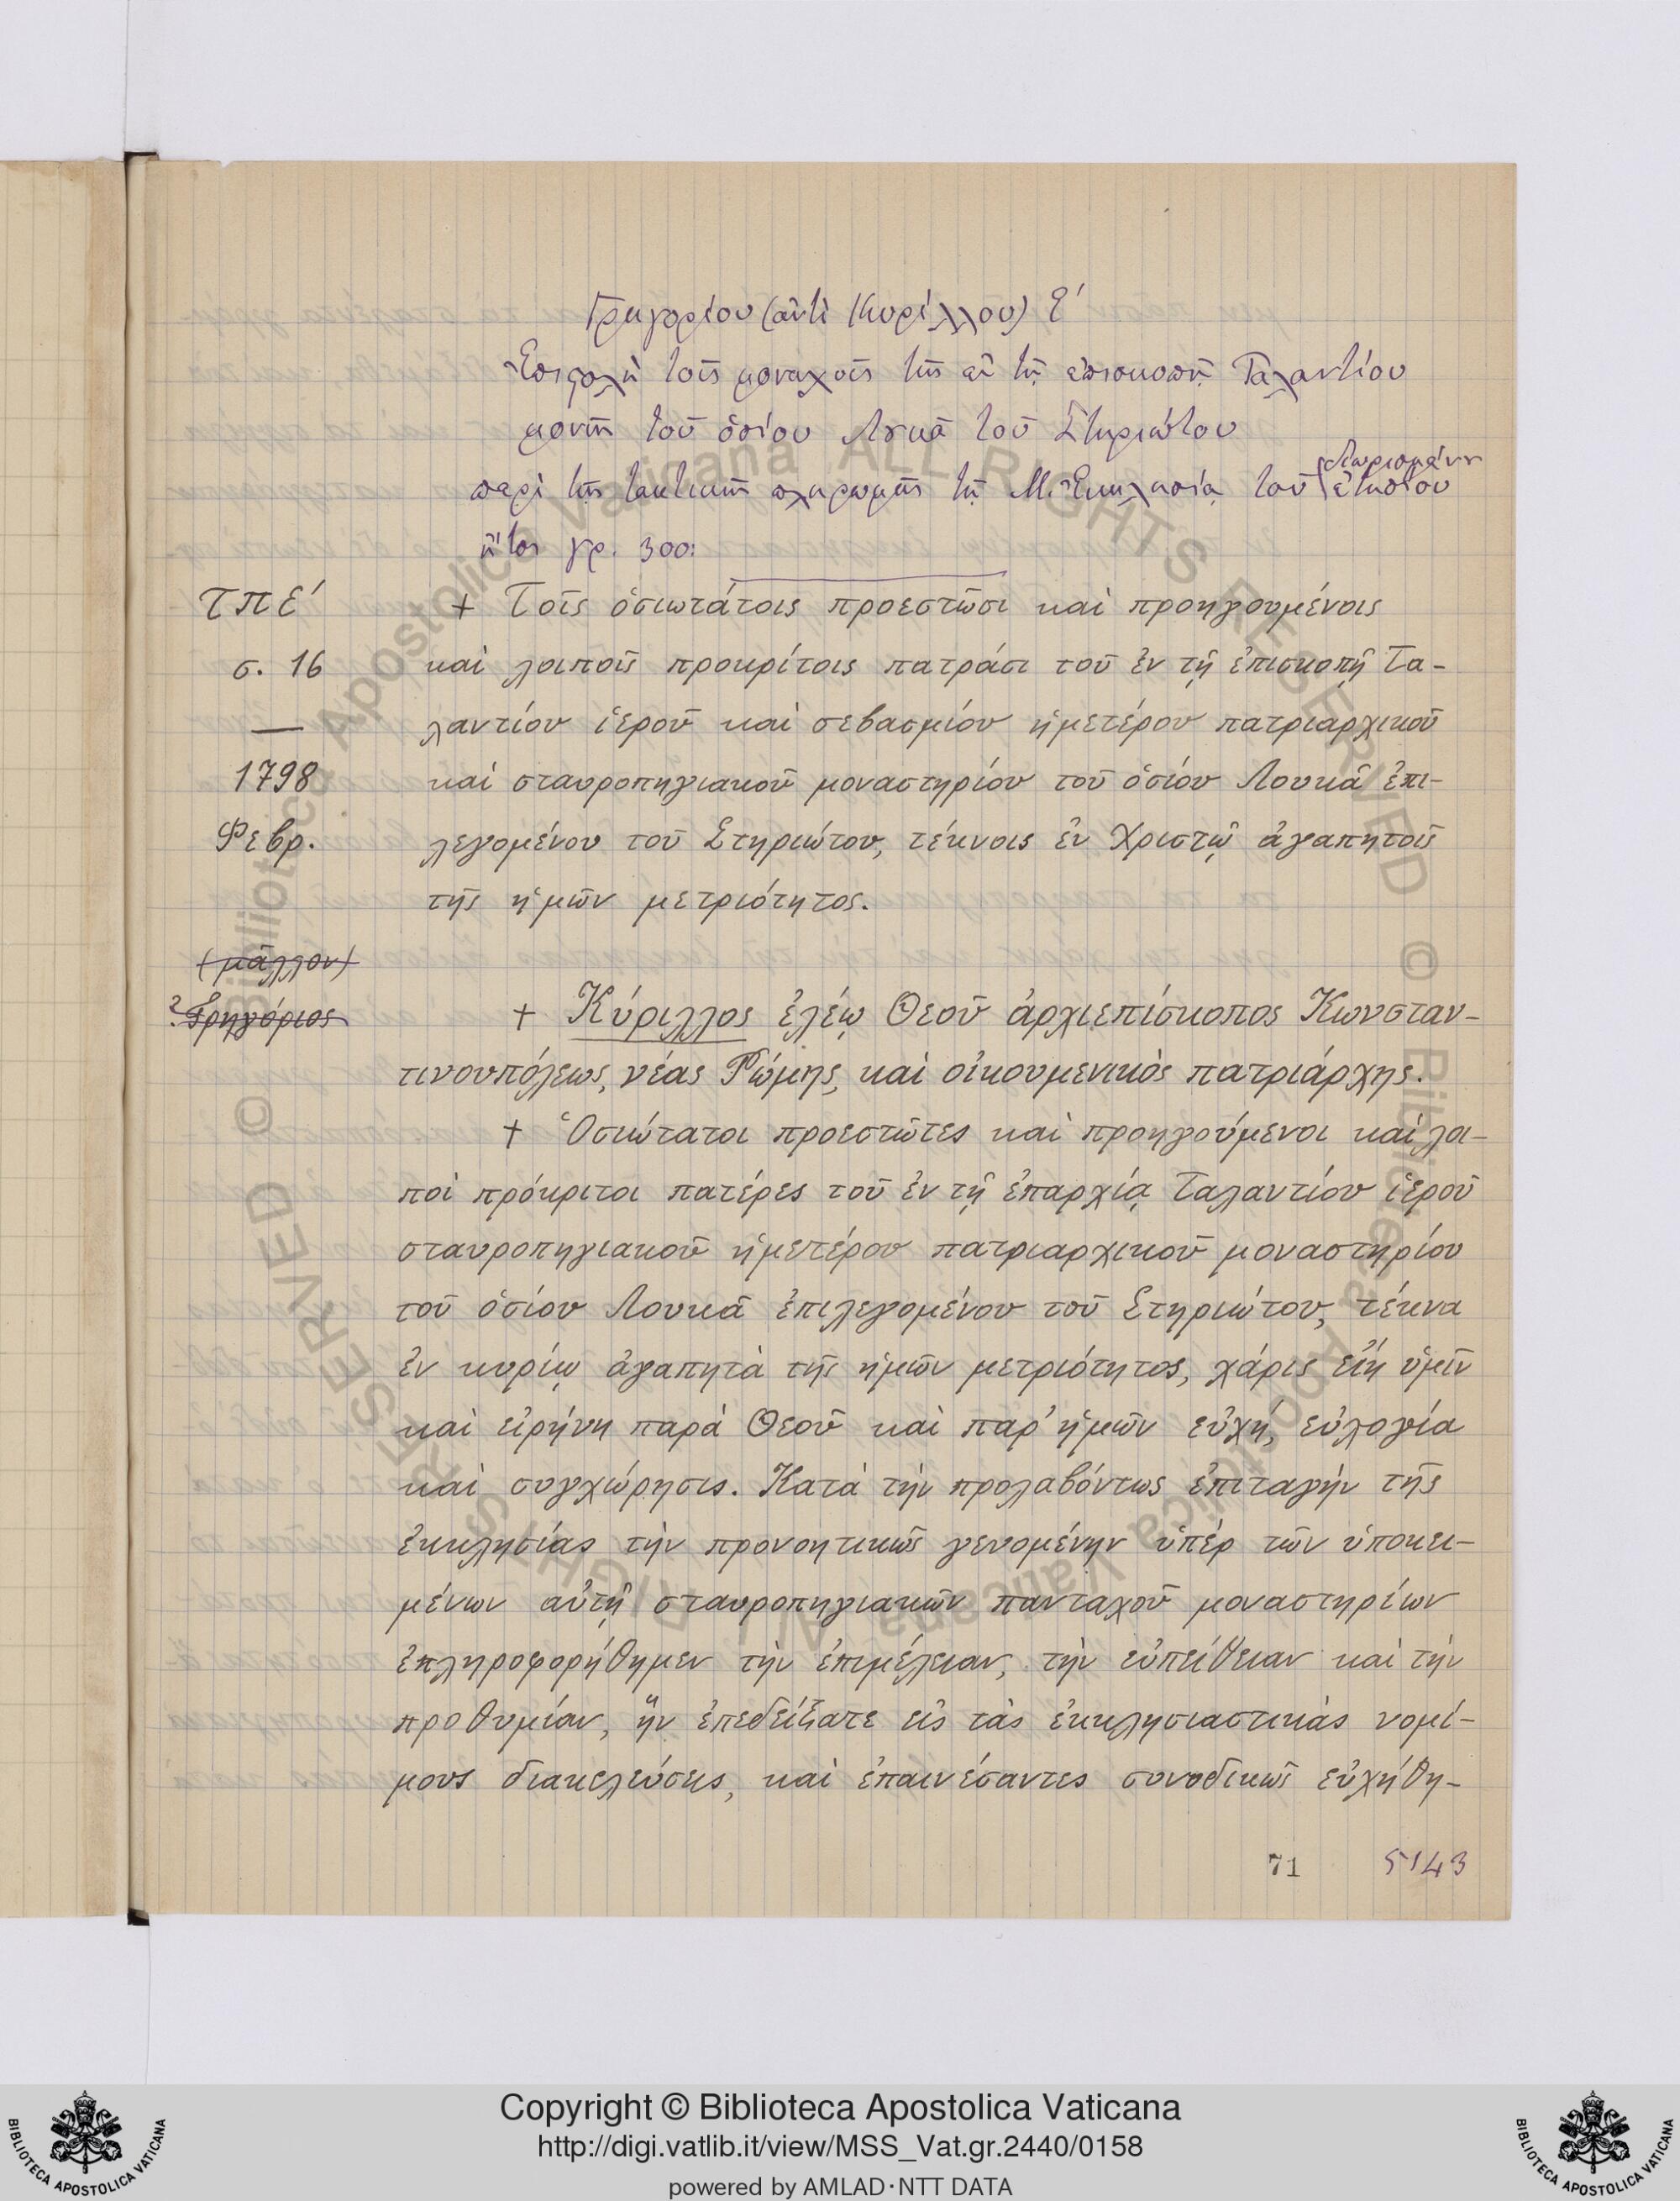 Γρηγορίου (ἀντὶ Κυρίλλου) Ε΄
Ἐπιστολὴ τοῖς μοναχοῖς τῆς ἐν τῇ ἐπισκοπῇ Ταλαντίου
μονῆς τοῦ ὁσίου Λουκᾶ τοῦ Στηριώτου
διωρισμένου
περὶ τῆς τακτικῆς πληρωμῆς τῇ Μ. Ἐκκλησίᾳ τοῦ ἐτησίου
ἤτοι γρ. 300:
ΤΠΕ΄ + Τοῖς ὁσιωτάτοις προεστῶσι καὶ προηγουμένοις
σ. 16 καὶ λοιποῖς προκρίτοις πατράσι τοῦ ἐν τῇ ἐπισκοπῇ Τα-
— λαντίου ἱεροῦ καὶ σεβασμίου ἡμετέρου πατριαρχικοῦ
1798 καὶ σταυροπηγιακοῦ μοναστηρίου τοῦ ὁσίου Λουκᾶ ἐπι-
Φεβρ. λεγομένου τοῦ Στηριώτου, τέκνοις ἐν Χριστῷ ἀγαπητοῖς
τῆς ἡμῶν μετριότητος.
(μᾶλλον)
? Γρηγόριος + Κύριλλος ἐλέῳ Θεοῦ ἀρχιεπίσκοπος Κωνσταν-
τινουπόλεως, νέας Ῥώμης, καὶ οἰκουμενικὸς πατριάρχης.
+ Ὁσιώτατοι προεστῶτες καὶ προηγούμενοι καὶ λοι-
ποὶ πρόκριτοι πατέρες τοῦ ἐν τῇ ἐπαρχίᾳ Ταλαντίου ἱεροῦ
σταυροπηγιακοῦ ἡμετέρου πατριαρχικοῦ μοναστηρίου
τοῦ ὁσίου Λουκᾶ ἐπιλεγομένου τοῦ Στηριώτου, τέκνα
ἐν κυρίῳ ἀγαπητὰ τῆς ἡμῶν μετριότητος, χάρις εἴη ὑμῖν
καὶ εἰρήνη παρὰ Θεοῦ καὶ παρ' ἡμῶν εὐχή, εὐλογία
καὶ συγχώρησις. Κατὰ τὴν προλαβόντως ἐπιταγὴν τῆς
ἐκκλησίας τὴν προνοητικῶς γενομένην ὑπὲρ τῶν ὑποκει-
μένων αὐτῇ σταυροπηγιακῶν πανταχοῦ μοναστηρίων
ἐπληροφορήθημεν τὴν ἐπιμέλειαν, τὴν εὐπείθειαν καὶ τὴν
προθυμίαν, ἣν ἐπεδείξατε εἰς τὰς ἐκκλησιαστικὰς νομί-
μους διακελεύσεις, καὶ ἐπαινέσαντες συνοδικῶς εὐχήθη-
71 5143
Copyright © Biblioteca Apostolica Vaticana
http://digi.vatlib.it/view/MSS_Vat.gr.2440/0158
powered by AMLAD·NTT DATA
BIBLIOTECA APOSTOLICA VATICANA
BIBLIOTECA APOSTOLICA VATICANA
© Biblioteca Apostolica Vaticana ALL RIGHTS RESERVED © Biblioteca Apostolica Vaticana ALL RIGHTS RESERVED